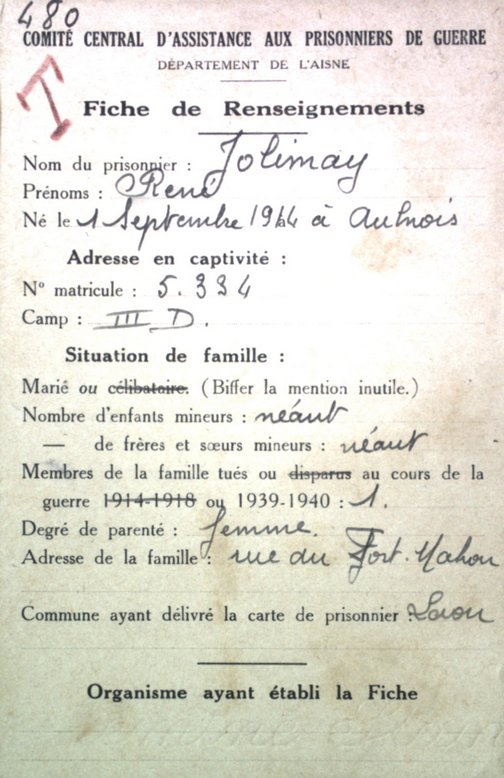 480
COMITÉ CENTRAL D'ASSISTANCE AUX PRISONNIERS DE GUERRE
DÉPARTEMENT DE L'AISNE
T
Fiche de Renseignements
Nom du prisonnier : Jolimay
Prénoms : René
Né le 1 Septembre 1914 à Aulnois
Adresse en captivité :
N° matricule : 5.334
Camp : III D.
Situation de famille :
Marié ou célibataire. (Biffer la mention inutile.)
Nombre d'enfants mineurs : néant
— de frères et sœurs mineurs : néant
Membres de la famille tués ou disparus au cours de la
guerre 1914-1918 ou 1939-1940 : 1.
Degré de parenté : femme.
Adresse de la famille : rue du Fort-Mahon
Commune ayant délivré la carte de prisonnier : Laon
Organisme ayant établi la Fiche